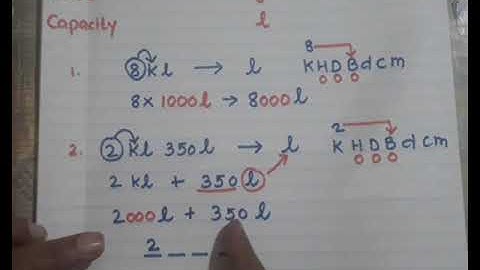 l
Capacity
8
1. 8 kl → l K H D B d c m
0 0 0
8 x 1000 l → 8000 l
2
2. 2 kl 350 l → l K H D B d c m
0 0 0
2 kl + 350 l
2000 l + 350 l
2 _ _ _